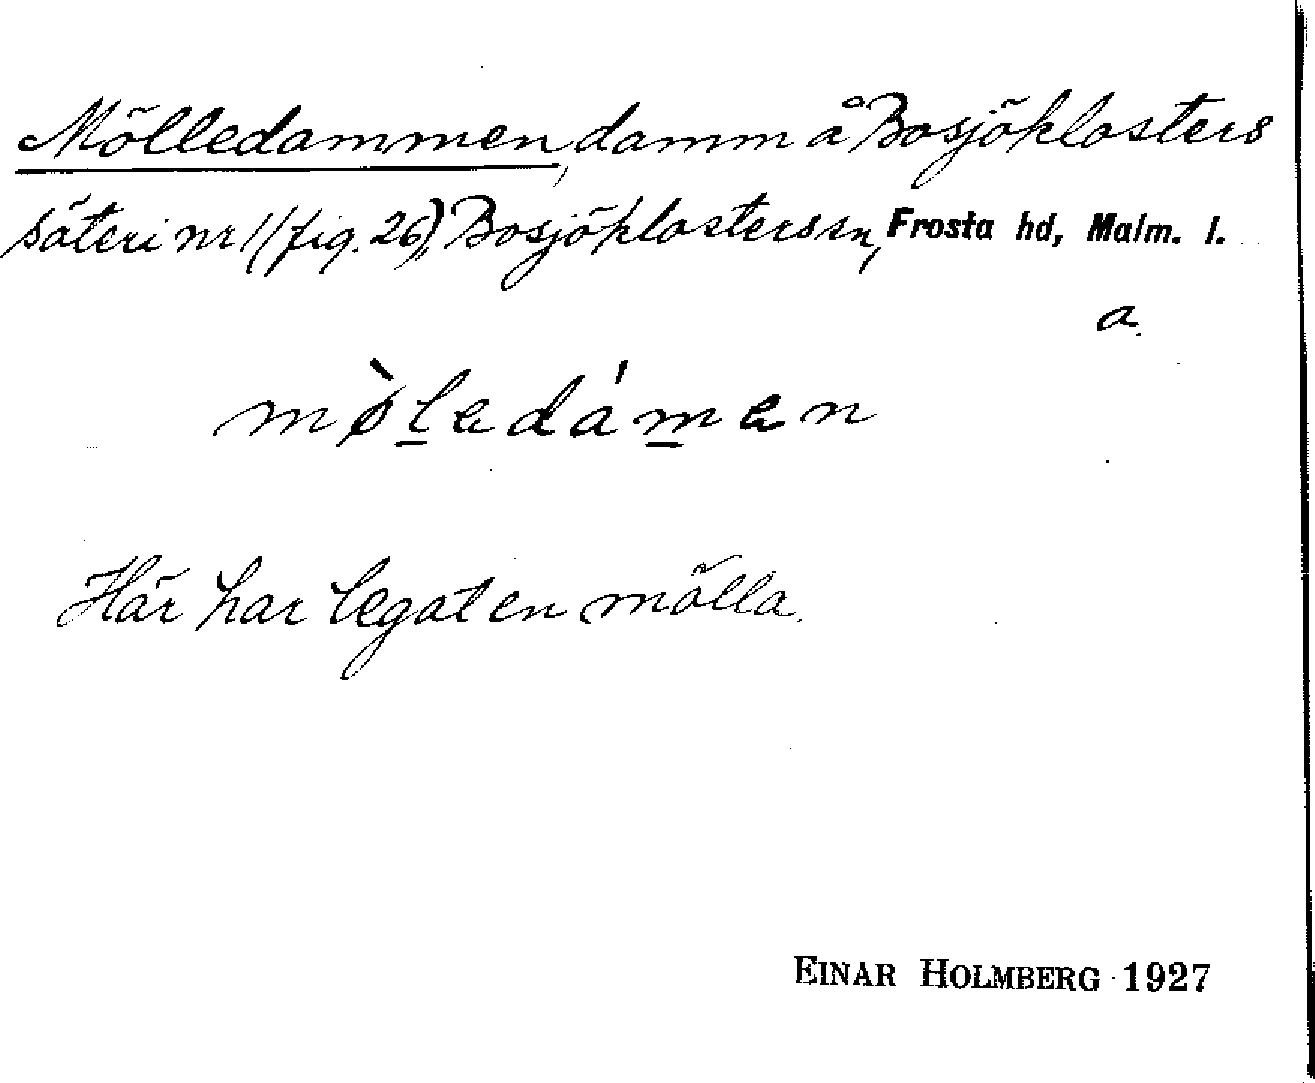 Mölledammen, damm å Bosjöklosters
säteri nr 1 (fig. 26), Bosjöklosters sn, Frosta hd, Malm. l.
a.
mø̀l̲edám̲en
Här har legat en mölla.
EINAR HOLMBERG 1927